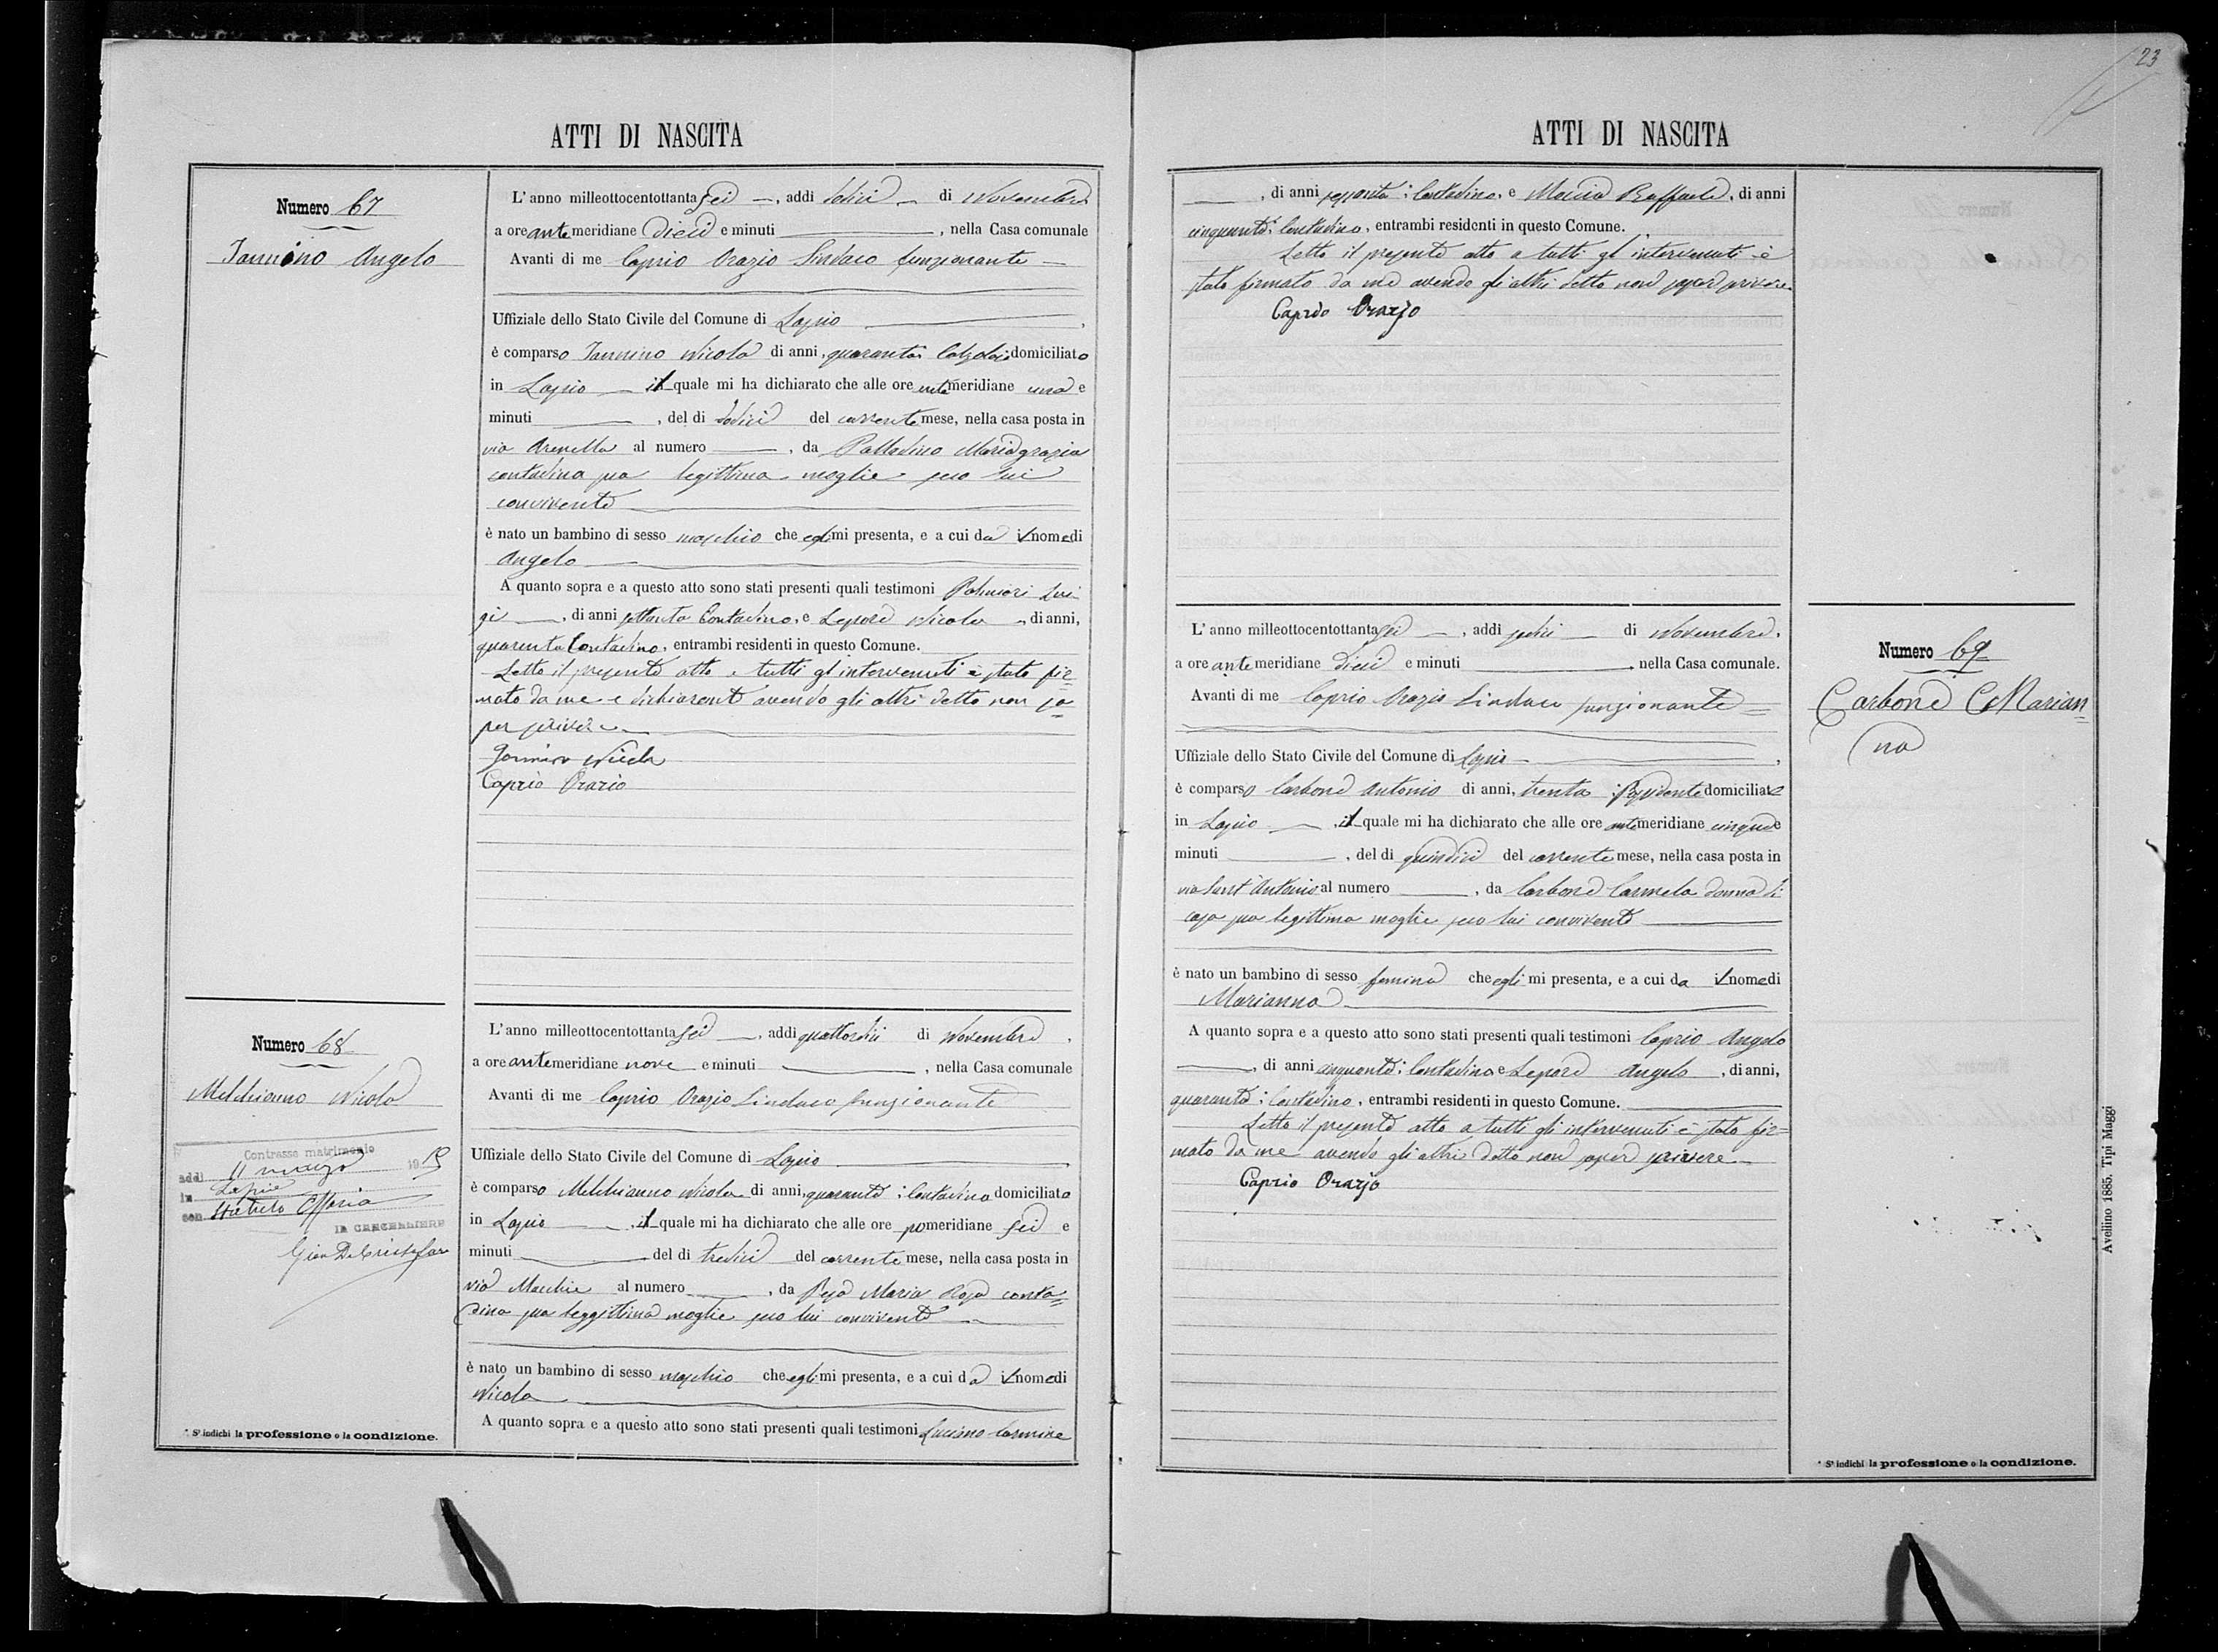 23
ATTI DI NASCITA
Numero 67
Iannino Angelo
L'anno milleottocentottantasei, addì dodici di Novembre
a ore antemeridiane dieci e minuti, nella Casa comunale
Avanti di me Caprio Orazio Sindaco funzionante
Uffiziale dello Stato Civile del Comune di Lapio,
è comparso Iannino Nicola di anni, quaranta: Calzolaio domiciliato
in Lapio il quale mi ha dichiarato che alle ore antemeridiane una e
minuti, del dì dodici del corrente mese, nella casa posta in
via Arenella al numero, da Palladino Mariagrazia
contadina sua legittima moglie seco lui
convivente
è nato un bambino di sesso maschio che egli mi presenta, e a cui da il nome di
Angelo
A quanto sopra e a questo atto sono stati presenti quali testimoni Lui=
gi, di anni settanta Contadino, e Lepore Nicola, di anni,
quaranta Contadino, entrambi residenti in questo Comune.
Letto il presente atto a tutti gl'intervenuti è stato fir=
mato da me e dichiarante avendo gli altri detto non sa=
per scrivere
Iannino Nicola
Caprio Orazio
Numero 68
Melchionno Nicola
Contrasse matrimonio
addì 11 marzo 19
in Lapio
con Maria
IL CANCELLIERE
L'anno milleottocentottantasei, addì quattordici di Novembre,
a ore antemeridiane nove e minuti, nella Casa comunale
Avanti di me Caprio Orazio Sindaco funzionante
Uffiziale dello Stato Civile del Comune di Lapio
è comparso Melchionno Nicola di anni, quaranta: Contadino domiciliato
in Lapio, il quale mi ha dichiarato che alle ore pomeridiane sei e
minuti del dì tredici del corrente mese, nella casa posta in
via Macchie al numero, da Maria Rosa conta=
dina sua leggittima moglie seco lui convivente
è nato un bambino di sesso maschio che egli mi presenta, e a cui da il nome di
Nicola
A quanto sopra e a questo atto sono stati presenti quali testimoni Luciano Carmine
* Si indichi la professione o la condizione.
ATTI DI NASCITA
, di anni sessanta: Contadino, e Raffaele, di anni
cinquanta: Contadino, entrambi residenti in questo Comune.
Letto il presente atto a tutti gl'intervenuti è
stato firmato da me avendo gli altri detto non saper scrivere
Caprio Orazio
L'anno milleottocentottantasei, addì sedici di Novembre,
a ore antemeridiane dieci e minuti, nella Casa comunale.
Avanti di me Caprio Orazio Sindaco funzionante
Uffiziale dello Stato Civile del Comune di Lapio,
è comparso Carbone Antonio di anni, trenta: Possidente domiciliato
in Lapio, il quale mi ha dichiarato che alle ore antemeridiane cinque e
minuti, del dì quindici del corrente mese, nella casa posta in
via Sant'Antonio al numero, da Carbone Carmela donna di
casa sua legittima moglie seco lui convivente
è nato un bambino di sesso femina che egli mi presenta, e a cui da il nome di
Marianna
A quanto sopra e a questo atto sono stati presenti quali testimoni Caprio Angelo
, di anni cinquanta: Contadino e Lepore Angelo, di anni,
quaranta: Contadino, entrambi residenti in questo Comune.
Letto il presente atto a tutti gli intervenuti è stato fir=
mato da me avendo gli altri detto non saper scrivere
Caprio Orazio
Numero 69
Carbone Marian=
na
* Si indichi la professione o la condizione.
Avellino 1885. Tipi Maggi